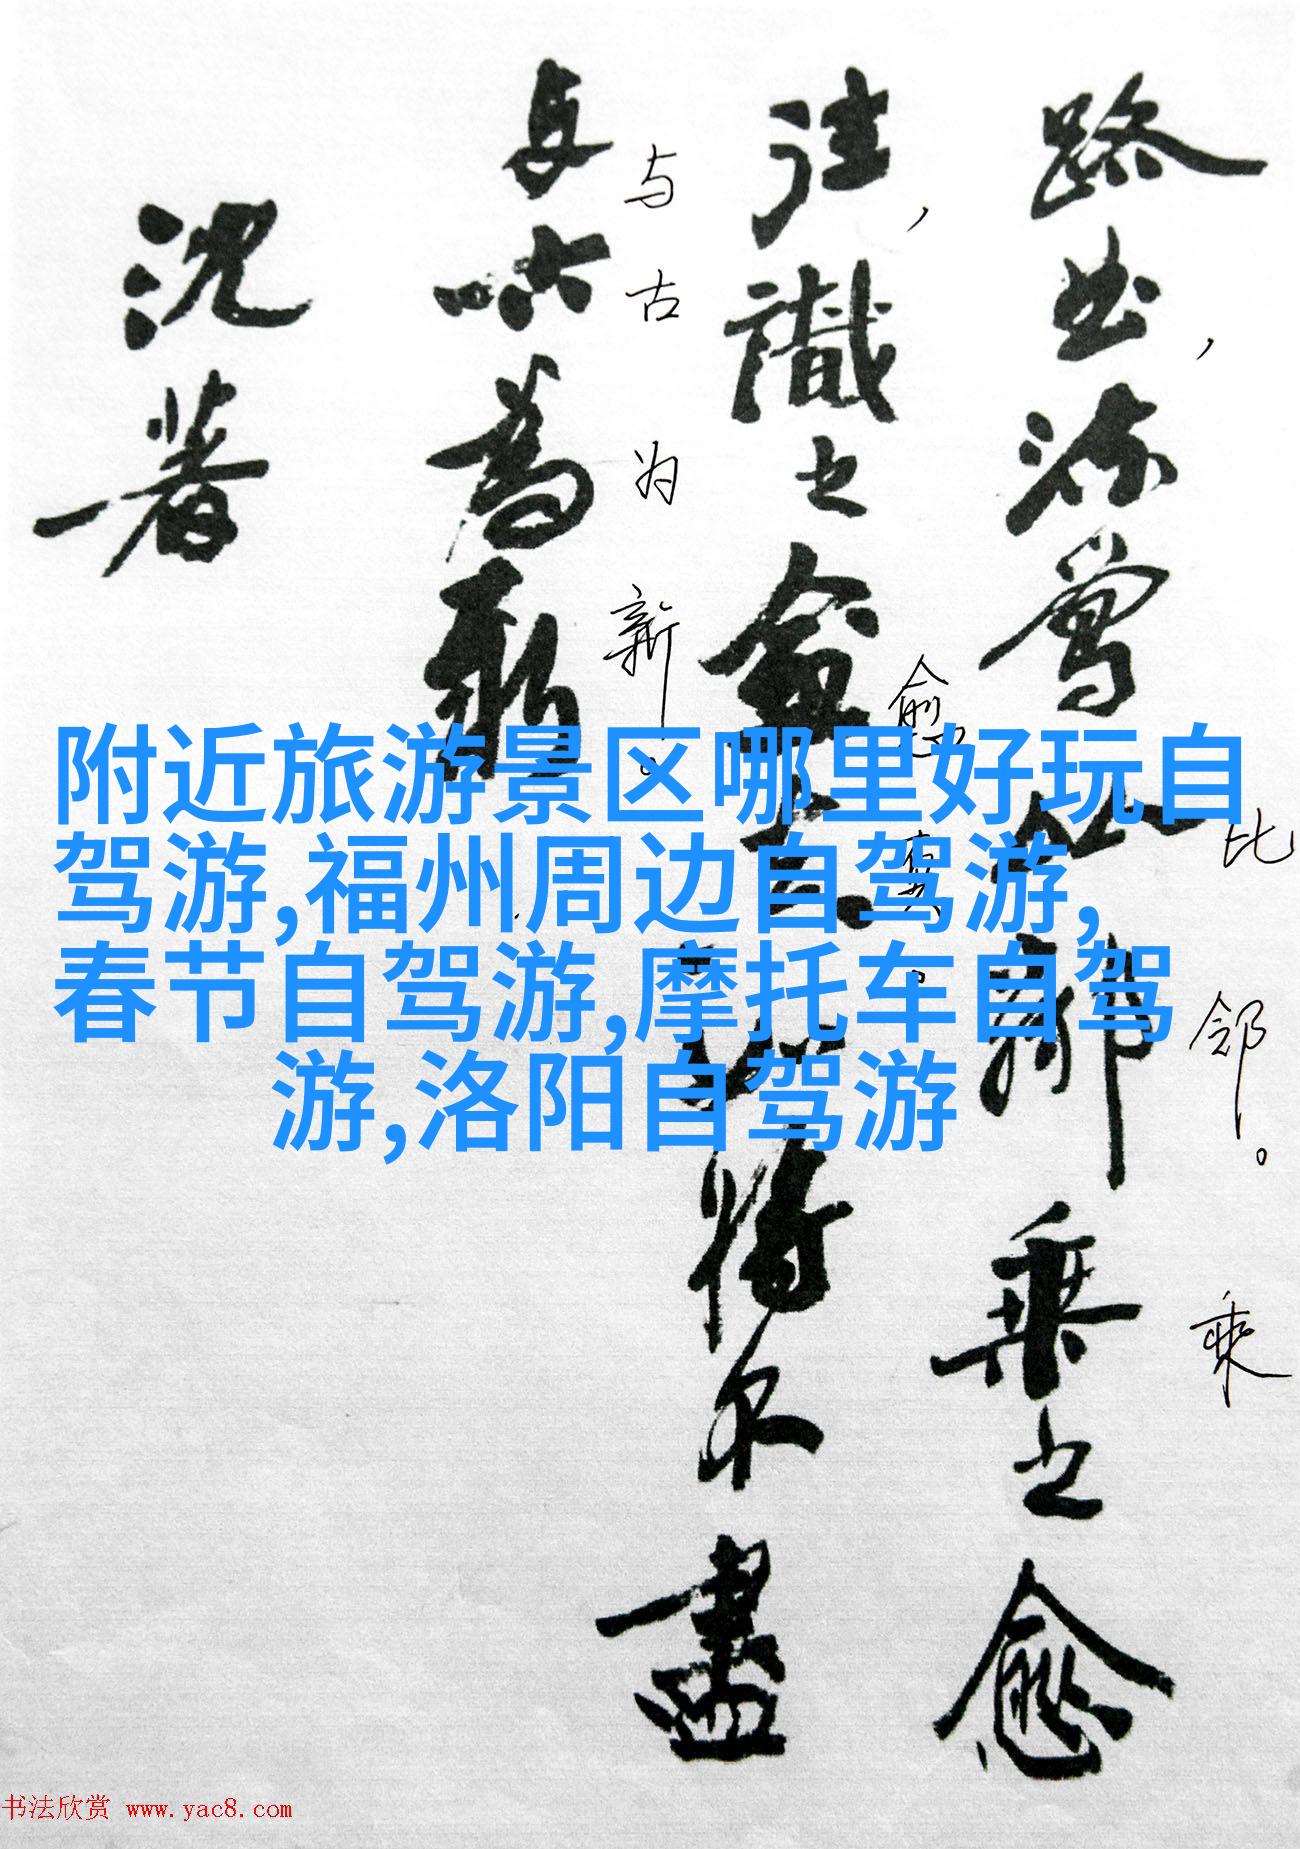 路曲,流鶯比鄰乘之愈
比邻。乘
往,識之愈真如將不盡
愈真。
与古為新
与古为新。
沈著
附近旅游景区哪里好玩自
驾游,福州周边自驾游,
春节自驾游,摩托车自驾
游,洛阳自驾游
书法欣赏 www.yac8.com